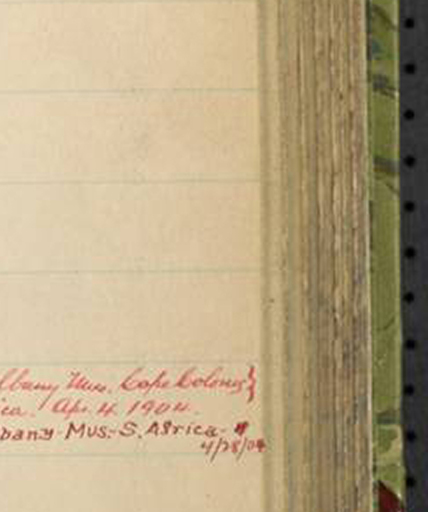 lbany Mus. Cape Colony}
ica. Apr. 4. 1904.
bany-Mus-S. Africa-
4/28/04